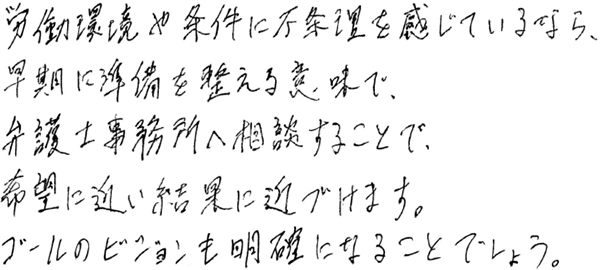 労働環境や条件に不条理を感じているなら、
早期に準備を整える意味で、
弁護士事務所へ相談することで、
希望に近い結果に近づけます。
ゴールのビジョンも明確になることでしょう。